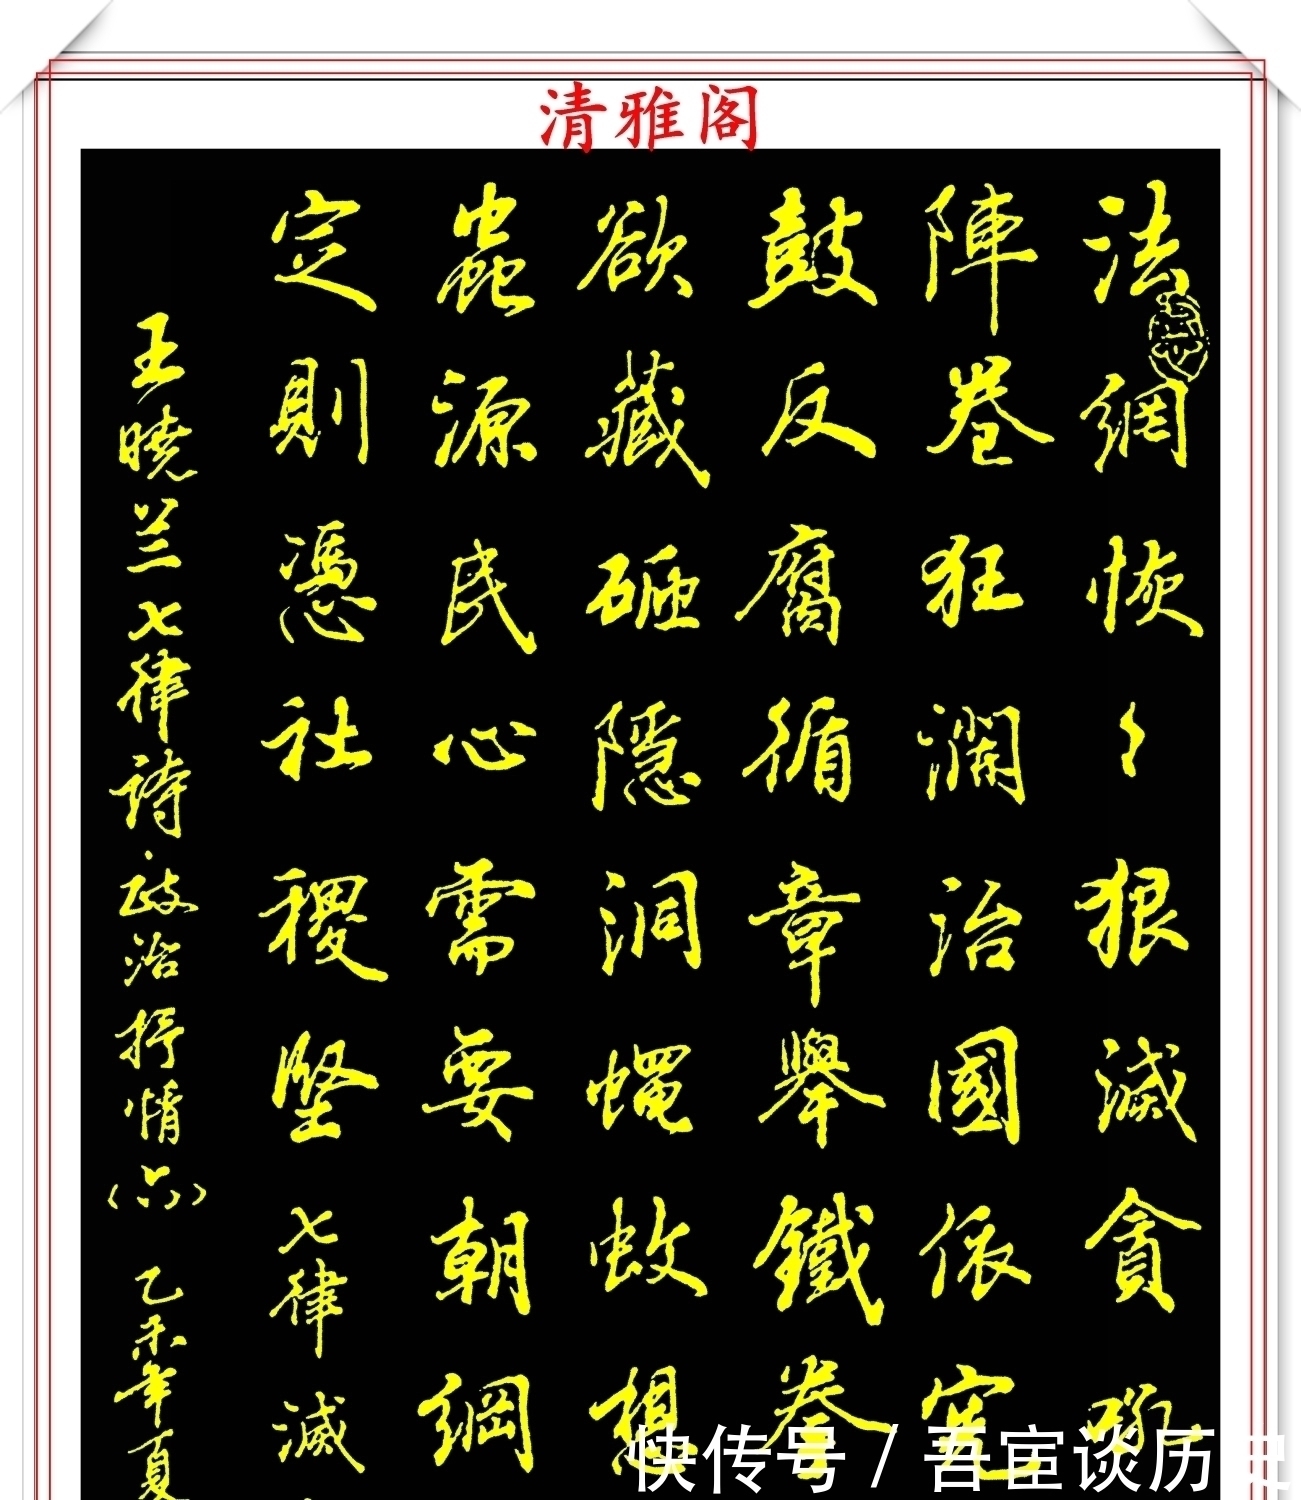 清雅阁
法網恢〻狠滅貪
陣卷狂瀾治國依憲
鼓反腐循章舉鐵拳
欲藏砸隱洞蝇蚊想
蟲源民心需要朝綱
定則憑社稷堅七律滅
王曉兰七律詩政治抒情(六)乙未年夏
快传号/吾宦谈历史